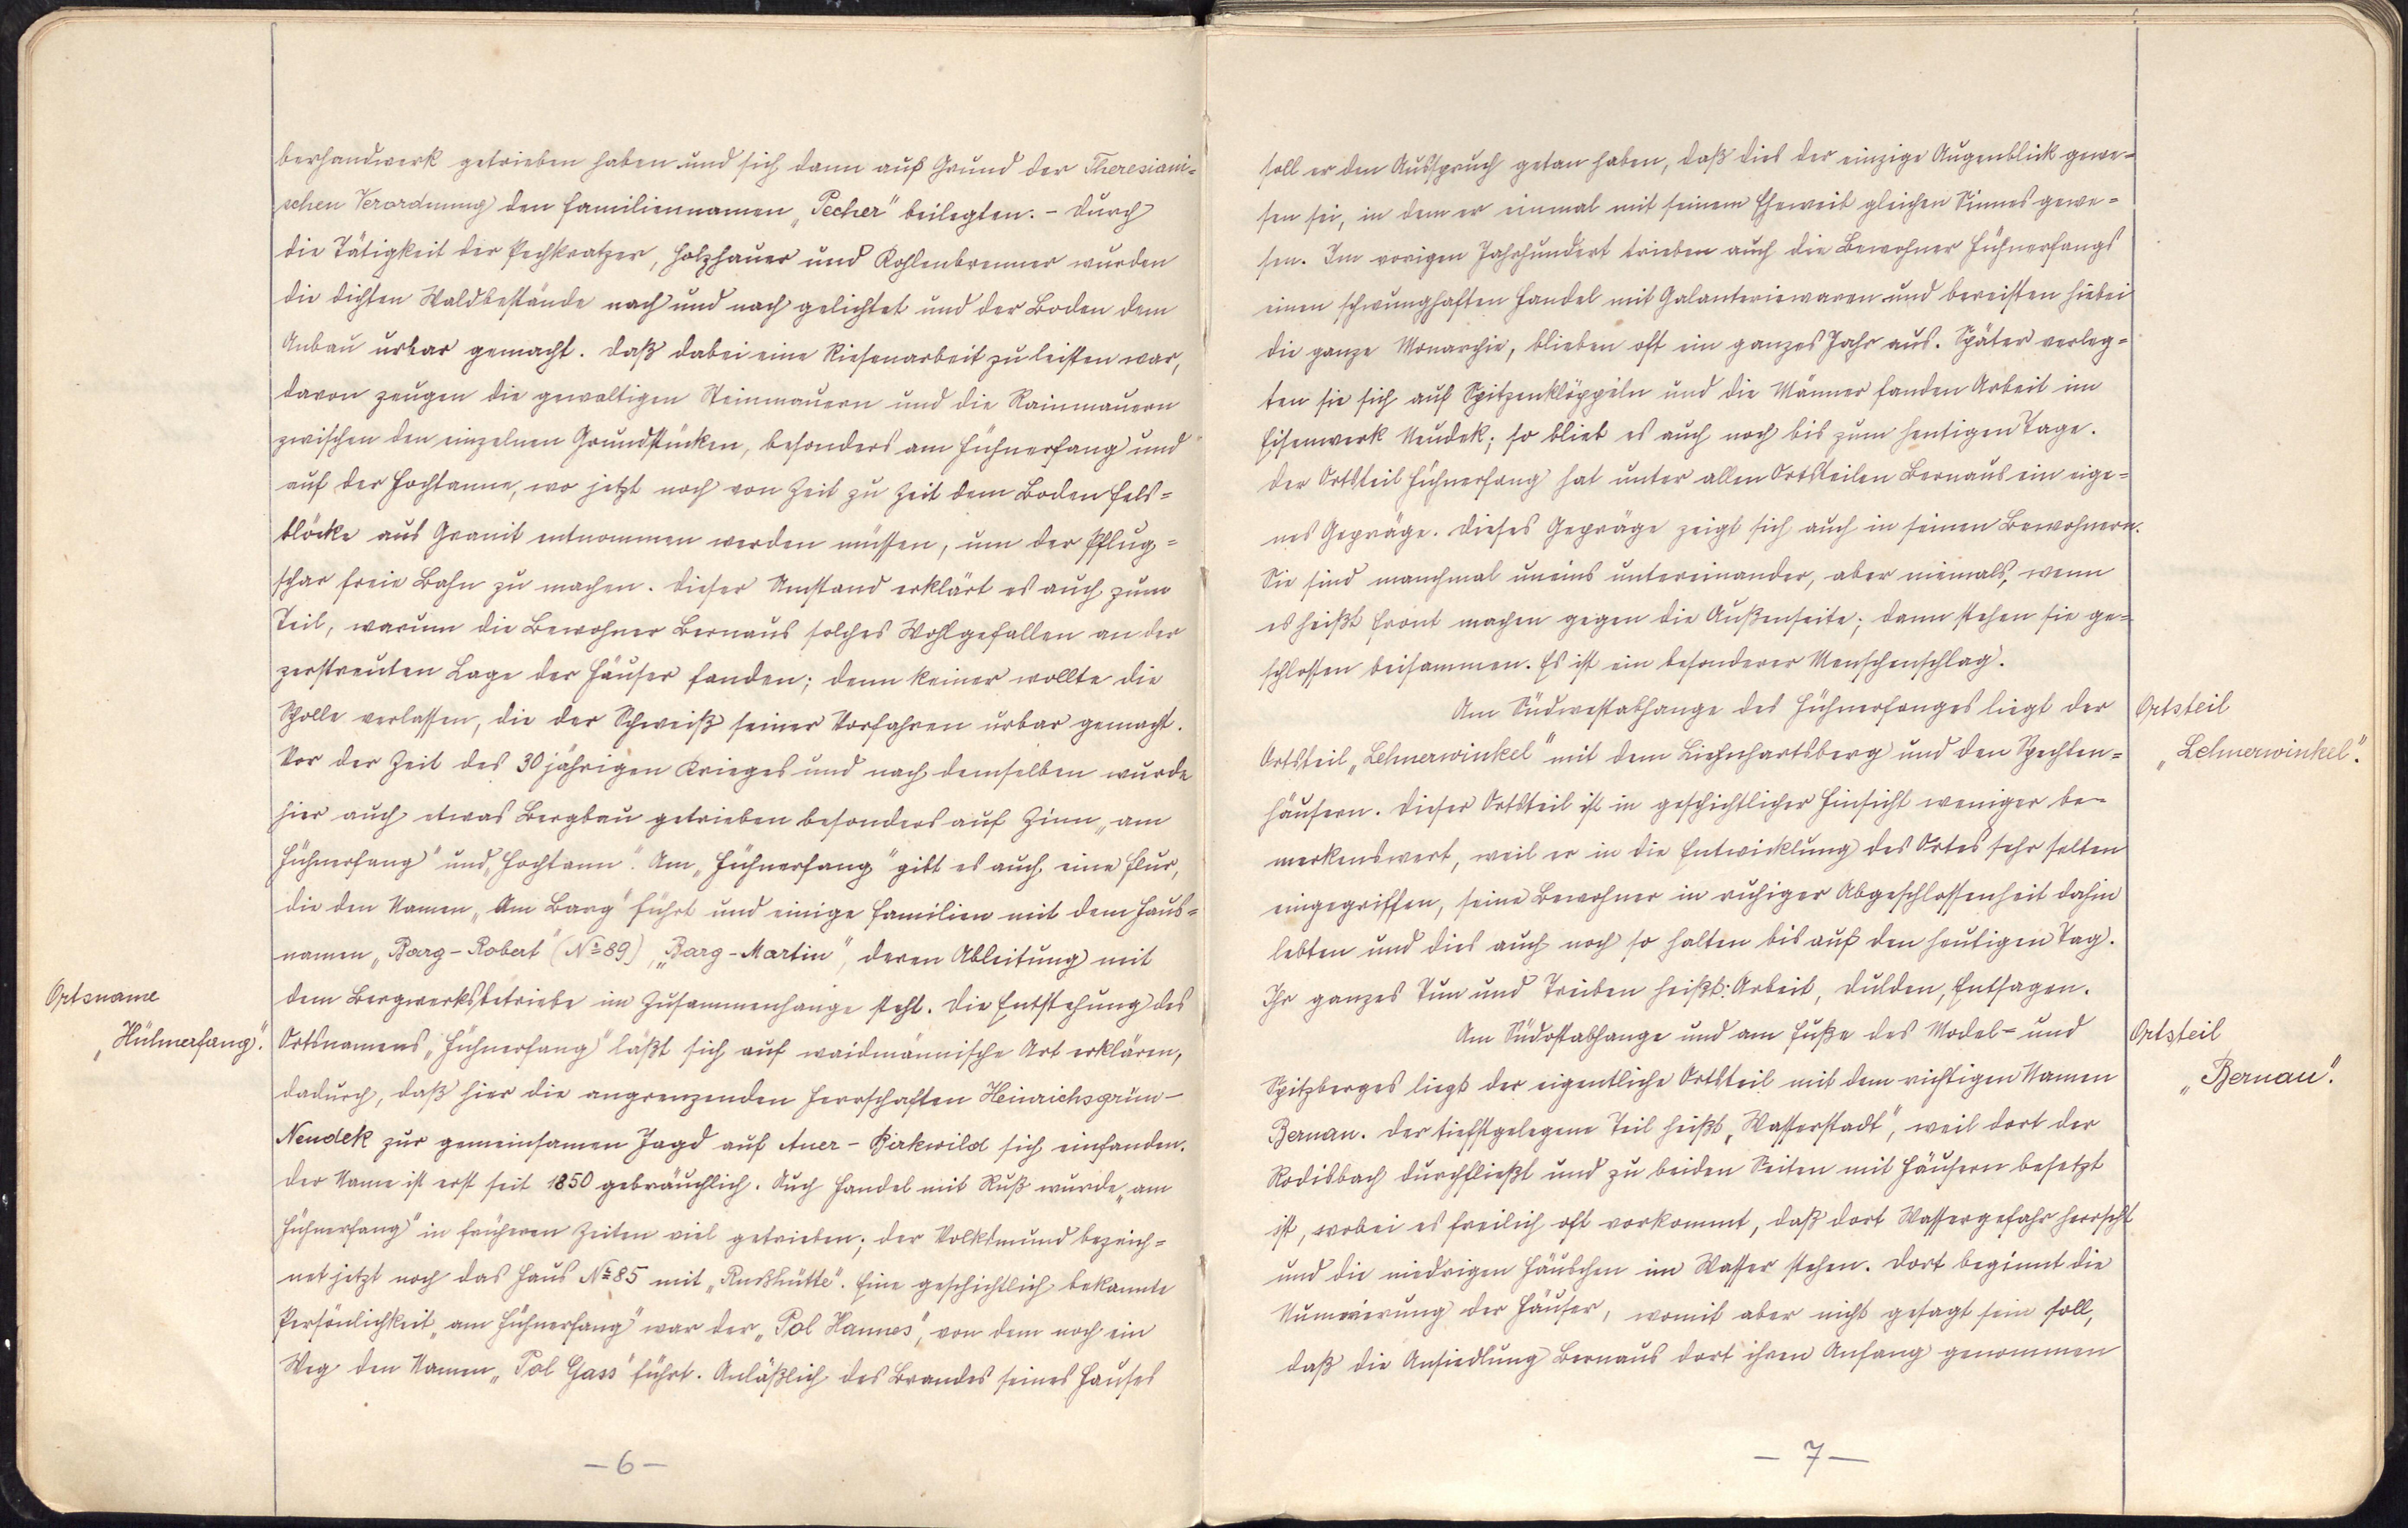 berhandwerk getrieben haben und sich dann auf Grund der Theresiani=
schen Verordnung den Familiennamen „Pecher" beilegten. - Durch
die Tätigkeit der Pechkratzer, Holzhauer und Kohlenbrenner wurden
die dichten Waldbestände nach und nach gelichtet und der Boden dem
Anbau urbar gemacht. Daß dabei eine Riesenarbeit zu leisten war,
davon zeugen die gewaltigen Steinmauern und die Rainmauern
zwischen den einzelnen Grundstücken, besonders am Hühnerfang und
auf der Hochtanne, wo jetzt noch von Zeit zu Zeit dem Boden Fels=
blöcke aus Granit entnommen werden müssen, um der Pflug=
schar freie Bahn zu machen. Dieser Umstand erklärt es auch zum
Teil, warum die Bewohner Bernaus solches Wohlgefallen an der
zerstreuten Lage der Häuser fanden; denn keiner wollte die
Scholle verlassen, die der Schweiß seiner Vorfahren urbar gemacht.
Vor der Zeit des 30 jährigen Krieges und nach demselben wurde
hier auch etwas Bergbau getrieben besonders auf Zinn „am
Hühnerfang" und „Hochtann". Am „Hühnerfang" gibt es auch eine Flur,
die den Namen „Am Barg" führt und einige Familien mit dem Haus=
namen „Barg-Robert" (№ 89), „Barg-Martin", deren Ableitung mit
dem Bergwerksbetriebe im Zusammenhange steht. Die Entstehung des
Ortsname
„Hühnerfang".
Ortsnamens „Hühnerfang" läßt sich auf waidmännische Art erklären,
dadurch, daß hier die angrenzenden Herrschaften Heinrichsgrün-
Neudek zur gemeinsamen Jagd auf Auer-Birkwild sich einfanden.
Der Name ist erst seit 1850 gebräuchlich. Auch Handel mit Ruß wurde „am
Hühnerfang" in früheren Zeiten viel getrieben; der Volksmund bezeich=
net jetzt noch das Haus № 85 mit „Rußhütte". Eine geschichtlich bekannte
Persönlichkeit „am Hühnerfang" war der „Pol Hannes", von dem noch ein
Weg den Namen „Pol Gass" führt. Anläßlich des Brandes seines Hauses
- 6 -
soll er den Ausspruch getan haben, daß dies der einzige Augenblick gewe=
sen sei, in dem er einmal mit seinem Eheweib gleichen Sinnes gewe=
sen. Im vorigen Jahrhundert trieben auch die Bewohner Hühnerfangs
einen schwunghaften Handel mit Galanteriewaren und bereisten hiebei
die ganze Monarchie, blieben oft ein ganzes Jahr aus. Später verleg=
ten sie sich auf Spitzenklöppeln und die Männer fanden Arbeit im
Eisenwerk Neudek; so blieb es auch noch bis zum heutigen Tage.
Der Ortsteil Hühnerfang hat unter allen Ortsteilen Bernaus ein eige=
nes Gepräge. Dieses Gepräge zeigt sich auch in seinen Bewohnern.
Sie sind manchmal uneins untereinander, aber niemals, wenn
es heißt Front machen gegen die Außenseite; dann stehen sie ge=
schlossen beisammen. Es ist ein besonderer Menschenschlag.
Am Südwestabhange des Hühnerfanges liegt der
Ortsteil
„Lehnerwinkel".
Ortsteil „Lehnerwinkel" mit dem Liehnhartsberg und den Spechten=
häusern. Dieser Ortsteil ist in geschichtlicher Hinsicht weniger be=
merkenswert, weil er in die Entwicklung des Ortes sehr selten
eingegriffen, seine Bewohner in ruhiger Abgeschlossenheit dahin
lebten und dies auch noch so halten bis auf den heutigen Tag.
Ihr ganzes Tun und Treiben heißt: Arbeit, Dulden, Entsagen.
Am Südostabhange und am Fuße des Model- und
Ortsteil
„Bernau".
Spitzberges liegt der eigentliche Ortsteil mit dem richtigen Namen
Bernau. Der tiefstgelegene Teil heißt „Wasserstadt", weil dort der
Rodisbach durchfließt und zu beiden Seiten mit Häusern besetzt
ist, wobei es freilich oft vorkommt, daß dort Wassergefahr herrscht
und die niedrigen Häuschen im Wasser stehen. Dort beginnt die
Numerierung der Häuser, womit aber nicht gesagt sein soll,
daß die Ansiedlung Bernaus dort ihren Anfang genommen
- 7 -